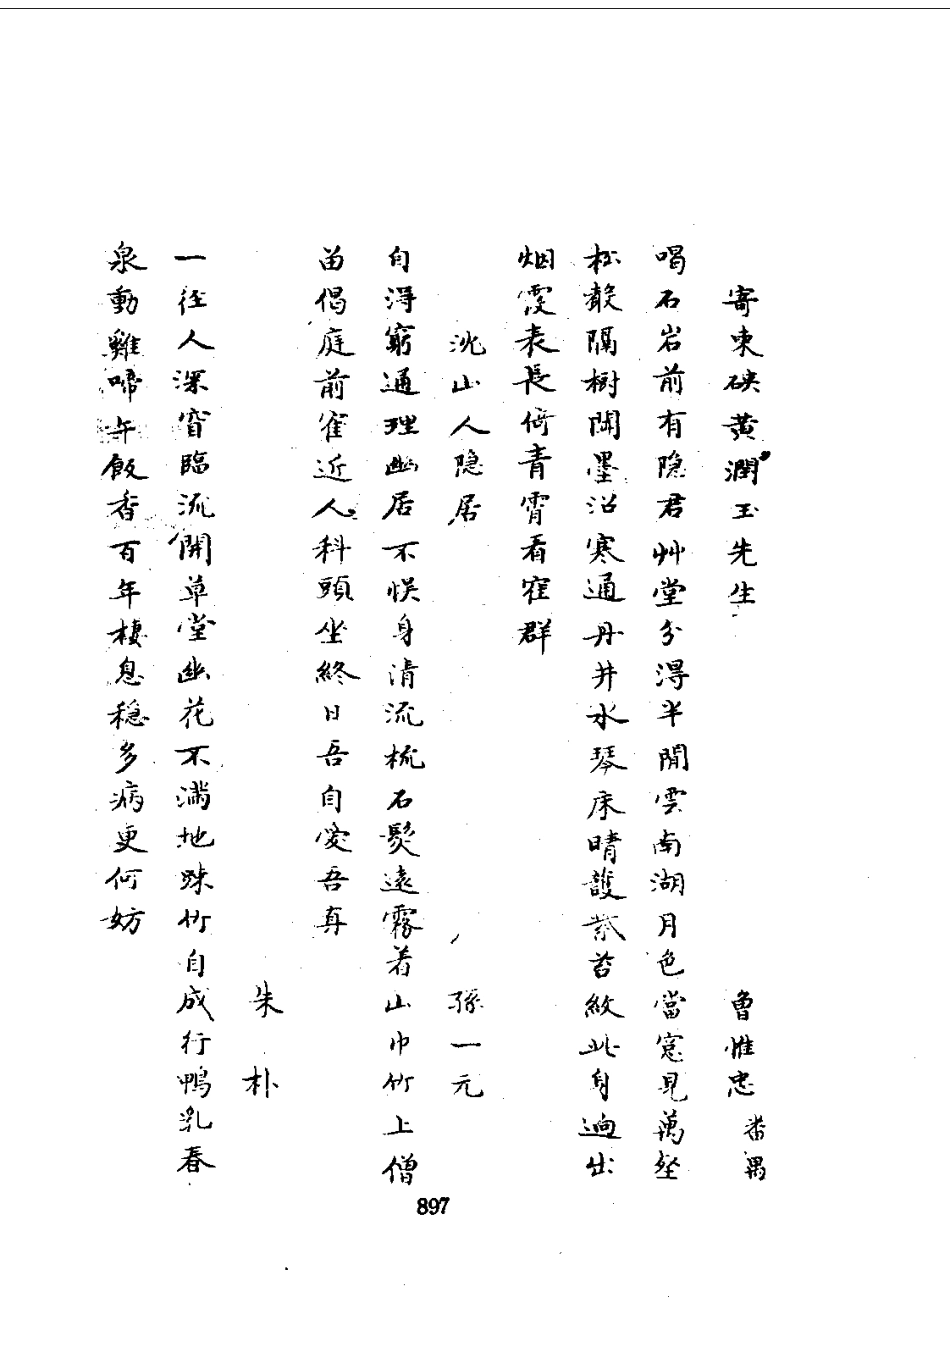 寄東硤黃潤玉先生 魯惟忠 番禺
喝石岩前有隐君艸堂分淂半閒雲南湖月色當窓見萬壑
松聲隔樹聞墨沼寒通丹井水琴床晴護紫苔紋此身逈出
烟霞表長倚青霄看寉群
沈山人隐居 孫一元
自淂窮通理幽居不悞身清流梳石髮遠霧着山巾竹上僧
畱偈庭前雀近人科頭坐終日吾自愛吾真
朱朴
一径人深窅臨流開草堂幽花不满地踈竹自成行鴨乳春
泉動雞啼午飯香百年棲息穏多病更何妨
897